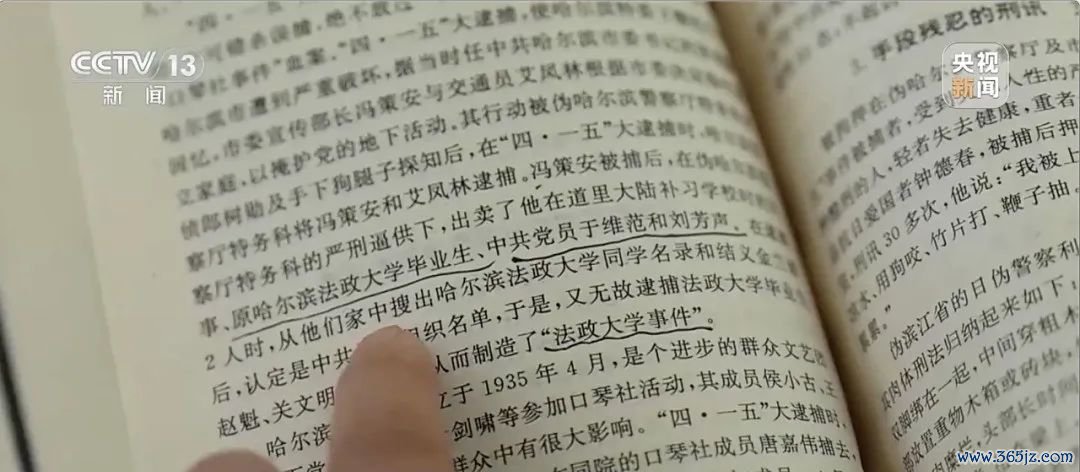 CCTV 13
新闻
央视
新闻
"四·一五"
可错杀误捕,绝不放过
口琴社事件"血案。"四·一五"大逮捕,使哈尔滨
哈尔滨市遭到严重破坏,据当时任中共哈尔滨市委书记的
回忆,市委宣传部长冯策安与交通员艾凤林根据市委决
立家庭,以掩护党的地下活动,其行动被伪哈尔滨警察厅
侦郎柯勋及手下狗腿子探知后,在"四·一五"大逮捕时,
察厅特务科将冯策安和艾凤林逮捕。冯策安被捕后,在伪哈尔滨
察厅特务科的严刑逼供下,出卖了他在道里大陆补习学校时的
事、原哈尔滨法政大学毕业生、中共党员于维范和刘芳声。在逮
2人时,从他们家中搜出哈尔滨法政大学同学名录和结义金兰
后,认定是中共 组织名单,于是,又无故逮捕法政大学毕业
赵魁、关文明 从而制造了"法政大学事件"。
哈尔滨 立于1935年4月,是个进步的群众文艺
剑啸等参加口琴社活动,其成员侯小古、王
群众中有很大影响。"四·一五"大逮捕时,
同院的口琴社成员唐嘉伟捕去,
3.手段残忍的刑讯
被拘押在伪哈尔 察厅及
事件被捕者,受到 人性的严
的人,轻者失去健康,重者
抗日爱国者钟德春,被捕后押
刑讯30多次,他说:"我被上
凉水、用狗咬、竹片打、鞭子抽。
累累。"
伪滨江省的日伪警察利
肉体刑法归纳起来如下:
双脚绑在一起,中间穿粗木
部放置重物木箱或砖块,
头部长时间